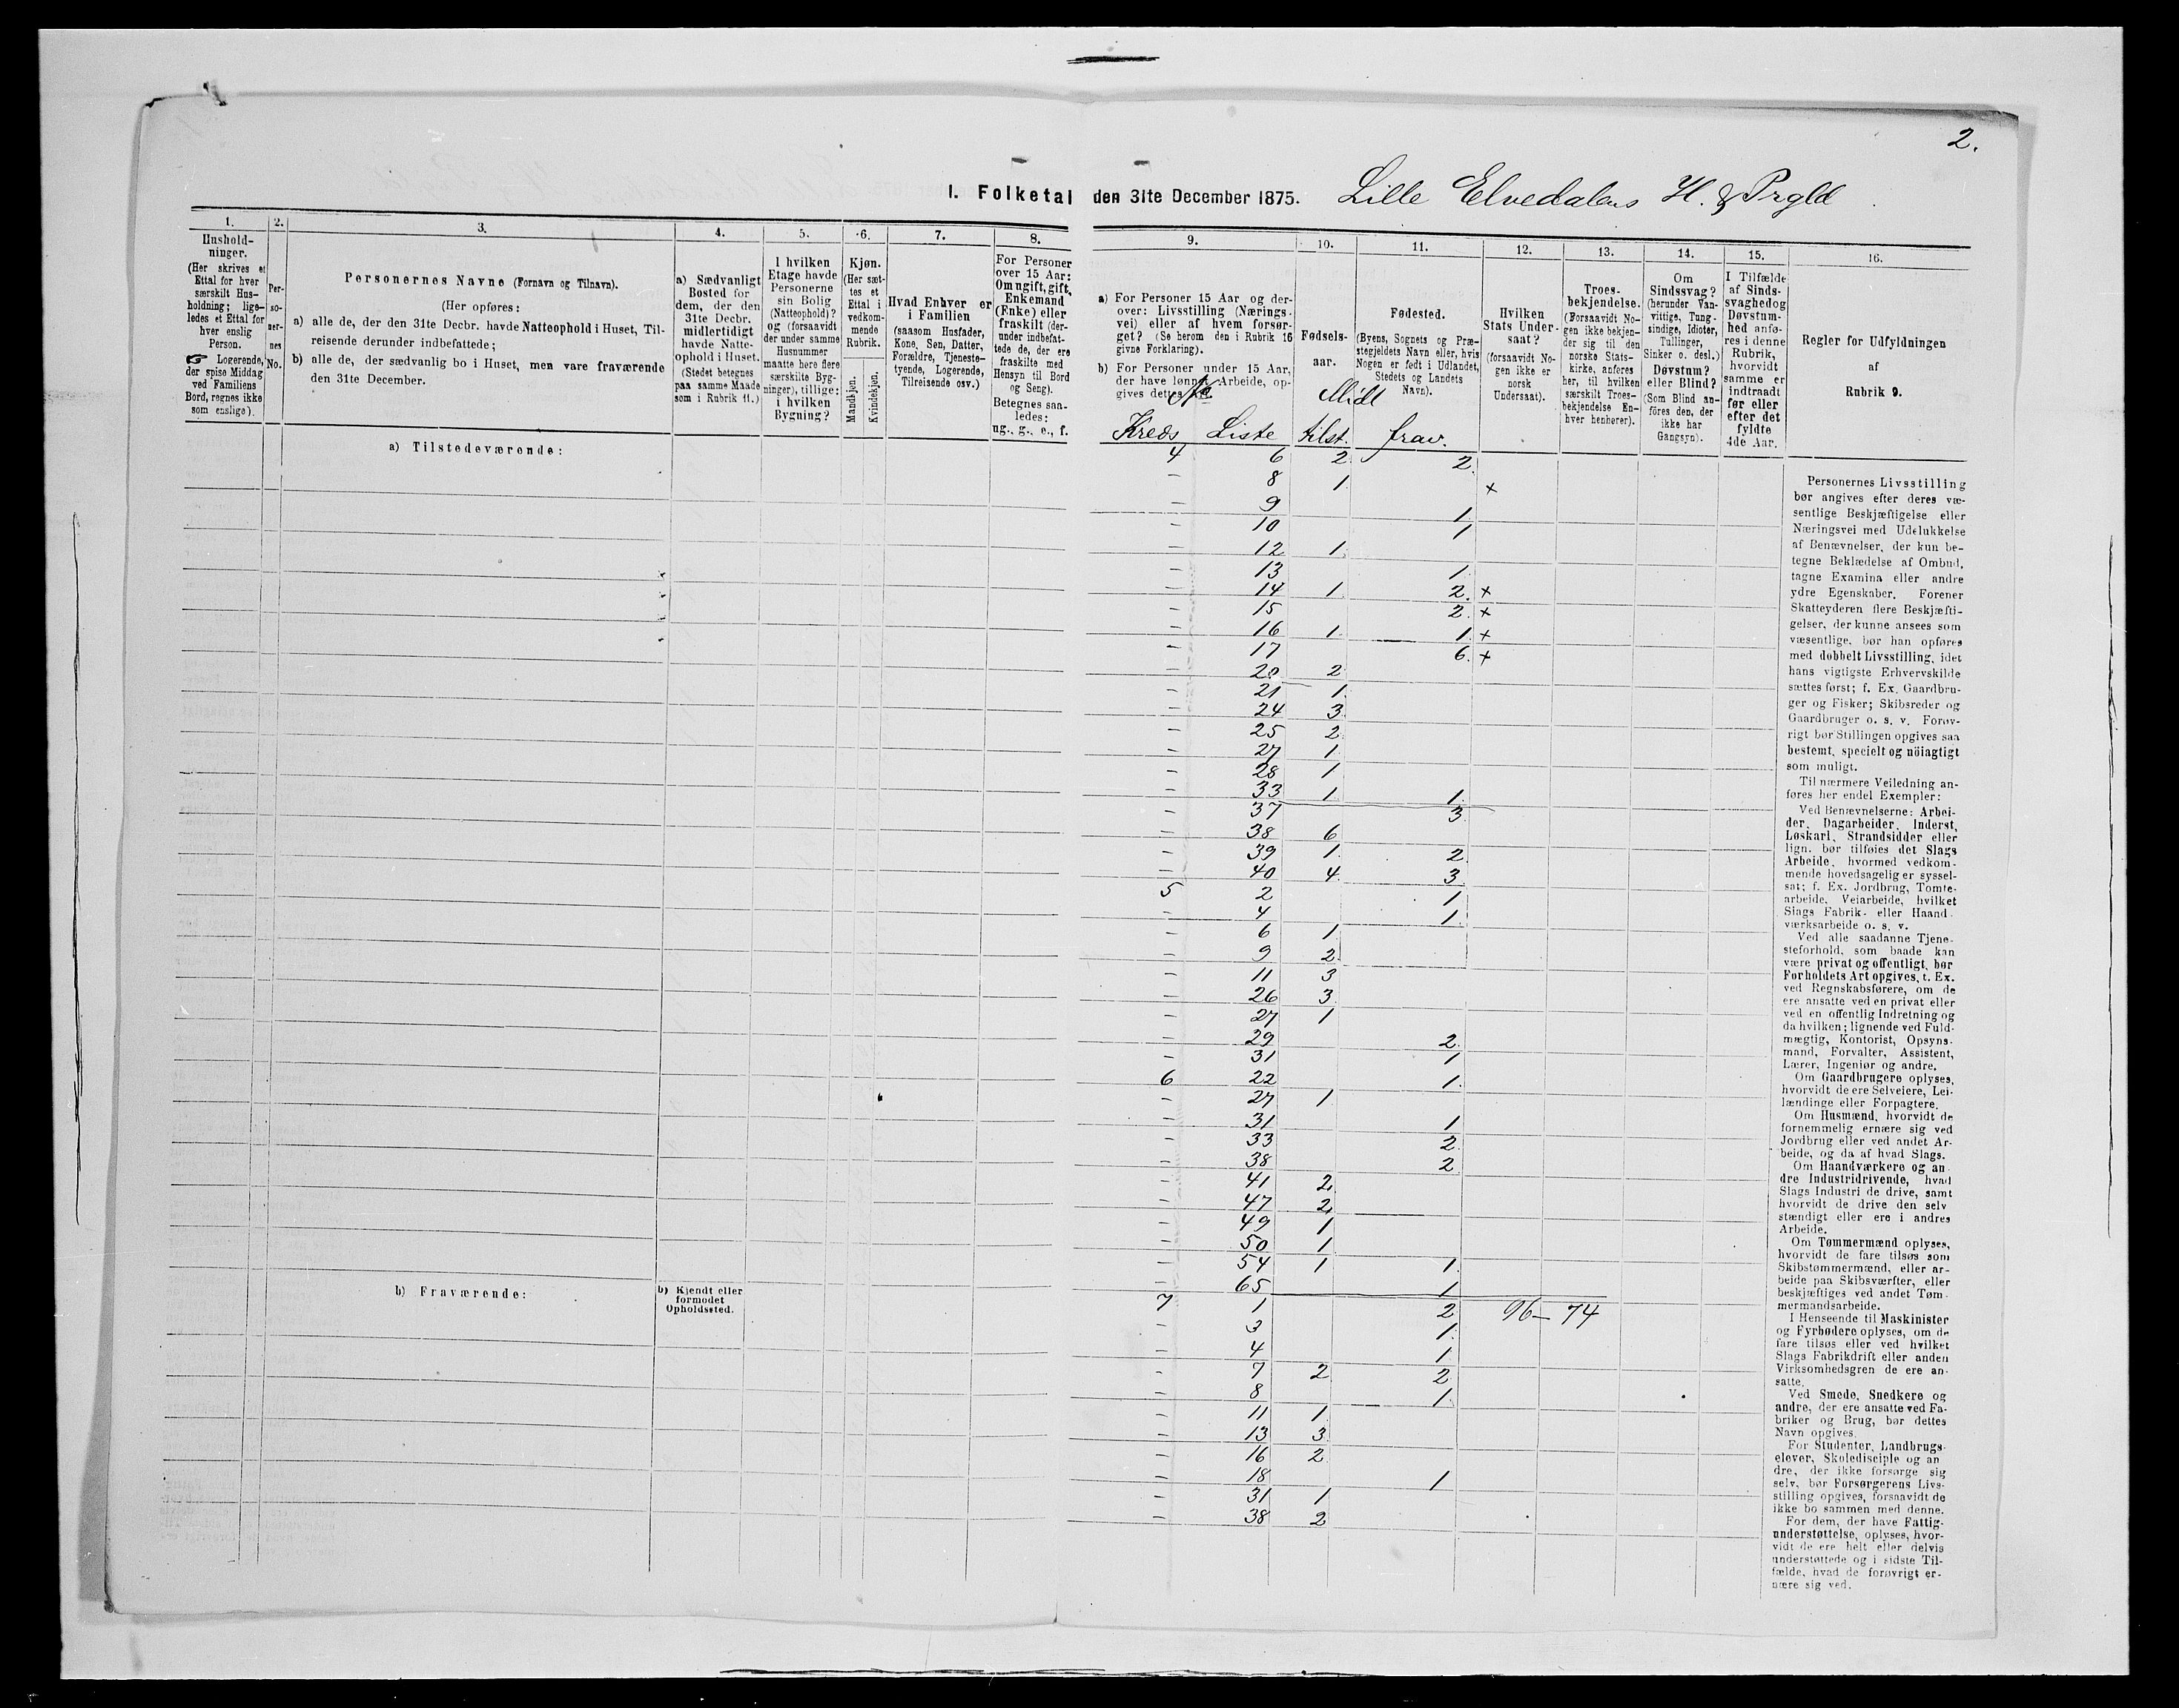 2.
I. Folketal den 31te December 1875. Lille Elvedalens H. & Prgld.
1.
Hushold-
ninger.
(Her skrives et
Ettal for hver
særskilt Hus-
holdning; lige-
ledes et Ettal for
hver enslig
Person.
☞ Logerende,
der spise Middag
ved Familiens
Bord, regnes ikke
som enslige).
2.
Per-
so-
ner-
nes
No.
3.
Personernes Navne (Fornavn og Tilnavn).
(Her opføres:
a) alle de, der den 31te Decbr. havde Natteophold i Huset, Til-
reisende derunder indbefattede;
b) alle de, der sædvanlig bo i Huset, men vare fraværende
den 31te December.
4.
a) Sædvanligt
Bosted for
dem, der den
31te Decbr.
midlertidigt
havde Natte-
ophold i Huset.
(Stedet betegnes
paa samme Maade
som i Rubrik 11.)
5.
I hvilken
Etage havde
Personerne
sin Bolig
(Natteophold)?
og (forsaavidt
der under samme
Husnummer
maatte høre flere
særskilte Byg-
ninger), tillige:
i hvilken
Bygning?
6.
Kjøn.
(Her sæt-
tes et
Ettal i
vedkom-
mende
Rubrik.
Mandkjøn.
Kvindekjøn.
7.
Hvad Enhver er
i Familien
(saasom Husfader,
Kone, Søn, Datter,
Forældre, Tjeneste-
tyende, Logerende,
Tilreisende osv.)
8.
For Personer
over 15 Aar:
Om ugift, gift,
Enkemand
(Enke) eller
fraskilt (der-
under indbefat-
tede de, der ere
fraskilte med
Hensyn til Bord
og Seng).
Betegnes saa-
ledes:
ug., g., e., f.
9.
a) For Personer 15 Aar og der-
over: Livsstilling (Nærings-
vei) eller af hvem forsør-
get? (Se herom den i Rubrik 16
givne Forklaring).
b) For Personer under 15 Aar,
der have lønnet Arbeide, op-
gives dettes
10.
Fødsels-
aar.
11.
Fødested.
(Byens, Sognets og Præ-
stegjeldets Navn eller, hvis
Nogen er født i Udlandet,
Stedets og Landets
Navn).
12.
Hvilken
Stats Under-
saat?
(forsaavidt No-
gen ikke er
norsk
Undersaat).
13.
Troes-
bekjendelse.
(Forsaavidt No-
gen ikke bekjen-
der sig til den
norske Stats-
kirke, anføres
her, til hvilken
særskilt Troes-
bekjendelse En-
hver henhører).
14.
Om
Sindssvag?
(herunder Van-
vittige, Tung-
sindige, Idioter,
Tullinger,
Sinker o. desl.)
Døvstum?
eller Blind?
(Som Blind an-
føres den, der
ikke har
Gangsyn).
15.
I Tilfælde
af Sinds-
svaghed og
Døvstum-
hed anfø-
res i denne
Rubrik,
hvorvidt
samme er
indtraadt
før eller
efter det
fyldte
4de Aar.
16.
Regler for Udfyldningen
af
Rubrik 9.
No. Midl
Kreds Liste tilst. frav.
a) Tilstedeværende:
4 6 2 2
- 8 1 x
- 9 1
- 10 1
- 12 1
- 13 1
- 14 1 2. x
- 15 2. x
- 16 1 1. x
- 17 6. x
- 20 2
- 21 1
- 24 3
- 25 2
- 27 1
- 28 1
- 33 1 1
- 37 3
- 38 6
- 39 1 2
- 40 4 3
5 2 1
- 4 1
- 6 1
- 9 2
- 11 3
- 26 3
- 27 1
- 29 2
- 31 1
6 22 1
- 27 1
- 31 1
- 33 2
- 38 2
- 41 2
- 47 2
- 49 1
- 50 1
- 54 1 1
- 65 1
7 1 2 96 - 74
- 3 1
- 4 1
- 7 2 2
- 8 1
- 11 1
- 13 3
- 16 2
- 18 1
- 31 1
- 38 2
b) Fraværende:
b) Kjendt eller
formodet
Opholdssted.
Personernes Livsstilling
bør angives efter deres væ-
sentlige Beskjæftigelse eller
Næringsvei med Udelukkelse
af Benævnelser, der kun be-
tegne Beklædelse af Ombud,
tagne Examina eller andre
ydre Egenskaber. Forener
Skatteyderen flere Beskjæfti-
gelser, der kunne ansees som
væsentlige, bør han opføres
med dobbelt Livsstilling, idet
hans vigtigste Erhvervskilde
sættes først; f. Ex. Gaardbru-
ger og Fisker; Skibsreder og
Gaardbruger o. s. v. Forøv-
rigt bør Stillingen opgives saa
bestemt, specielt og nöiagtigt
som muligt.
Til nærmere Veiledning an-
føres her endel Exempler:
Ved Benævnelserne: Arbei-
der, Dagarbeider, Inderst,
Løskarl, Strandsidder eller
lign. bør tilføies det Slags
Arbeide, hvormed vedkom-
mende hovedsagelig er syssel-
sat; f. Ex. Jordbrug, Tomte-
arbeide, Veiarbeide, hvilket
Slags Fabrik- eller Haand-
værksarbeide o. s. v.
Ved alle saadanne Tjene-
steforhold, som baade kan
være privat og offentligt, bør
Forholdets Art opgives, t. Ex.
ved Regnskabsførere, om de
ere ansatte ved en privat eller
ved en offentlig Indretning og
da hvilken; lignende ved Fuld-
mægtig, Kontorist, Opsyns-
mand, Forvalter, Assistent,
Lærer, Ingeniør og andre.
Om Gaardbrugere oplyses,
hvorvidt de ere Selveiere, Lei-
lændinge eller Forpagtere.
Om Husmænd, hvorvidt de
fornemmelig ernære sig ved
Jordbrug eller ved andet Ar-
beide, og da af hvad Slags.
Om Haandværkere og an-
dre Industridrivende, hvad
Slags Industri de drive, samt
hvorvidt de drive den selv
stændigt eller ere i andres
Arbeide.
Om Tømmermænd oplyses,
hvorvidt de fare tilsøs som
Skibstømmermænd, eller ar-
beide paa Skibsværfter, eller
beskjæftiges ved andet Tøm-
mermandsarbeide.
I Henseende til Maskinister
og Fyrbødere oplyses, om de
fare tilsøs eller ved hvilket
Slags Fabrikdrift eller anden
Virksomhedsgren de ere an-
satte.
Ved Smede, Snedkere og
andre, der ere ansatte ved Fa-
briker og Brug, bør dettes
Navn opgives.
For Studenter, Landbrugs-
elever, Skoledisciple og an
dre, der ikke forsørge sig
selv, bør Forsørgerens Livs-
stilling opgives, forsaavidt de
ikke bo sammen med denne.
For dem, der have Fattig-
understøttelse, oplyses, hvor-
vidt de ere helt eller delvis
understøttede og i sidste Til-
fælde, hvad de forøvrigt er-
nære sig ved.